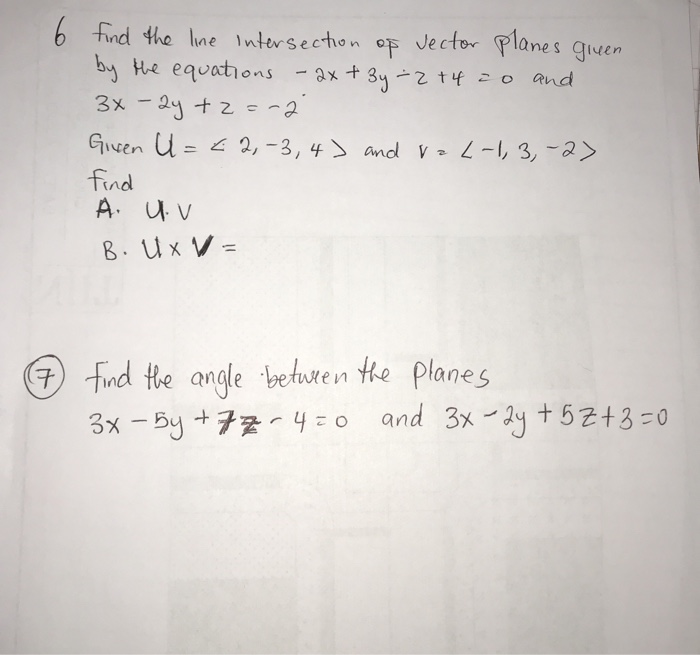 6 Find the line intersection of vector planes given
by the equations - 2x + 3y - z + 4 = 0 and
3x - 2y + z = -2
Given U = < 2, -3, 4 > and v = < -1, 3, -2 >
find
A. U. V
B. U x V =
7 find the angle between the planes
3x - 5y + 7z - 4 = 0 and 3x - 2y + 5z + 3 = 0